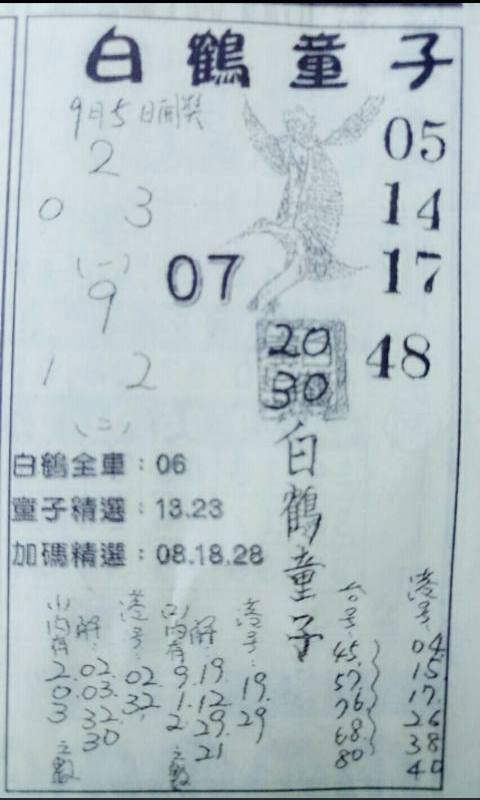 白鶴童子
9月5日開獎
2
0 3
(一)
9
1 2
(二)
05
14
17
48
07
20
30
白鶴童子
白鶴全車：06
童子精選：13.23
加碼精選：08.18.28
(一)內有
2.
0.
3
之數
解：
02.
03.
32.
30
港号：
02
32
(二)內有
9.
1.
2.
之數
解：
19.
12.
29.
21
港号：
19.
29
台号：
45.
57.
76.
68.
80
港号：
04
15
17.
26
38
40